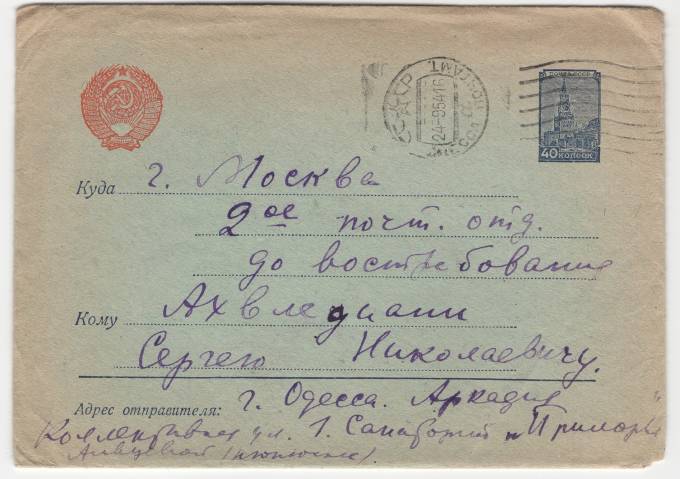 ПОЧТА СССР
40 КОПЕЕК
24-9 54 16
Куда г. Москва
2ое почт. отд.
до востребования
Кому Ахвледиани
Сергею Николаевичу.
Адрес отправителя: г. Одесса. Аркадия
Коллективная ул. 1. Санаторий „Приморье"